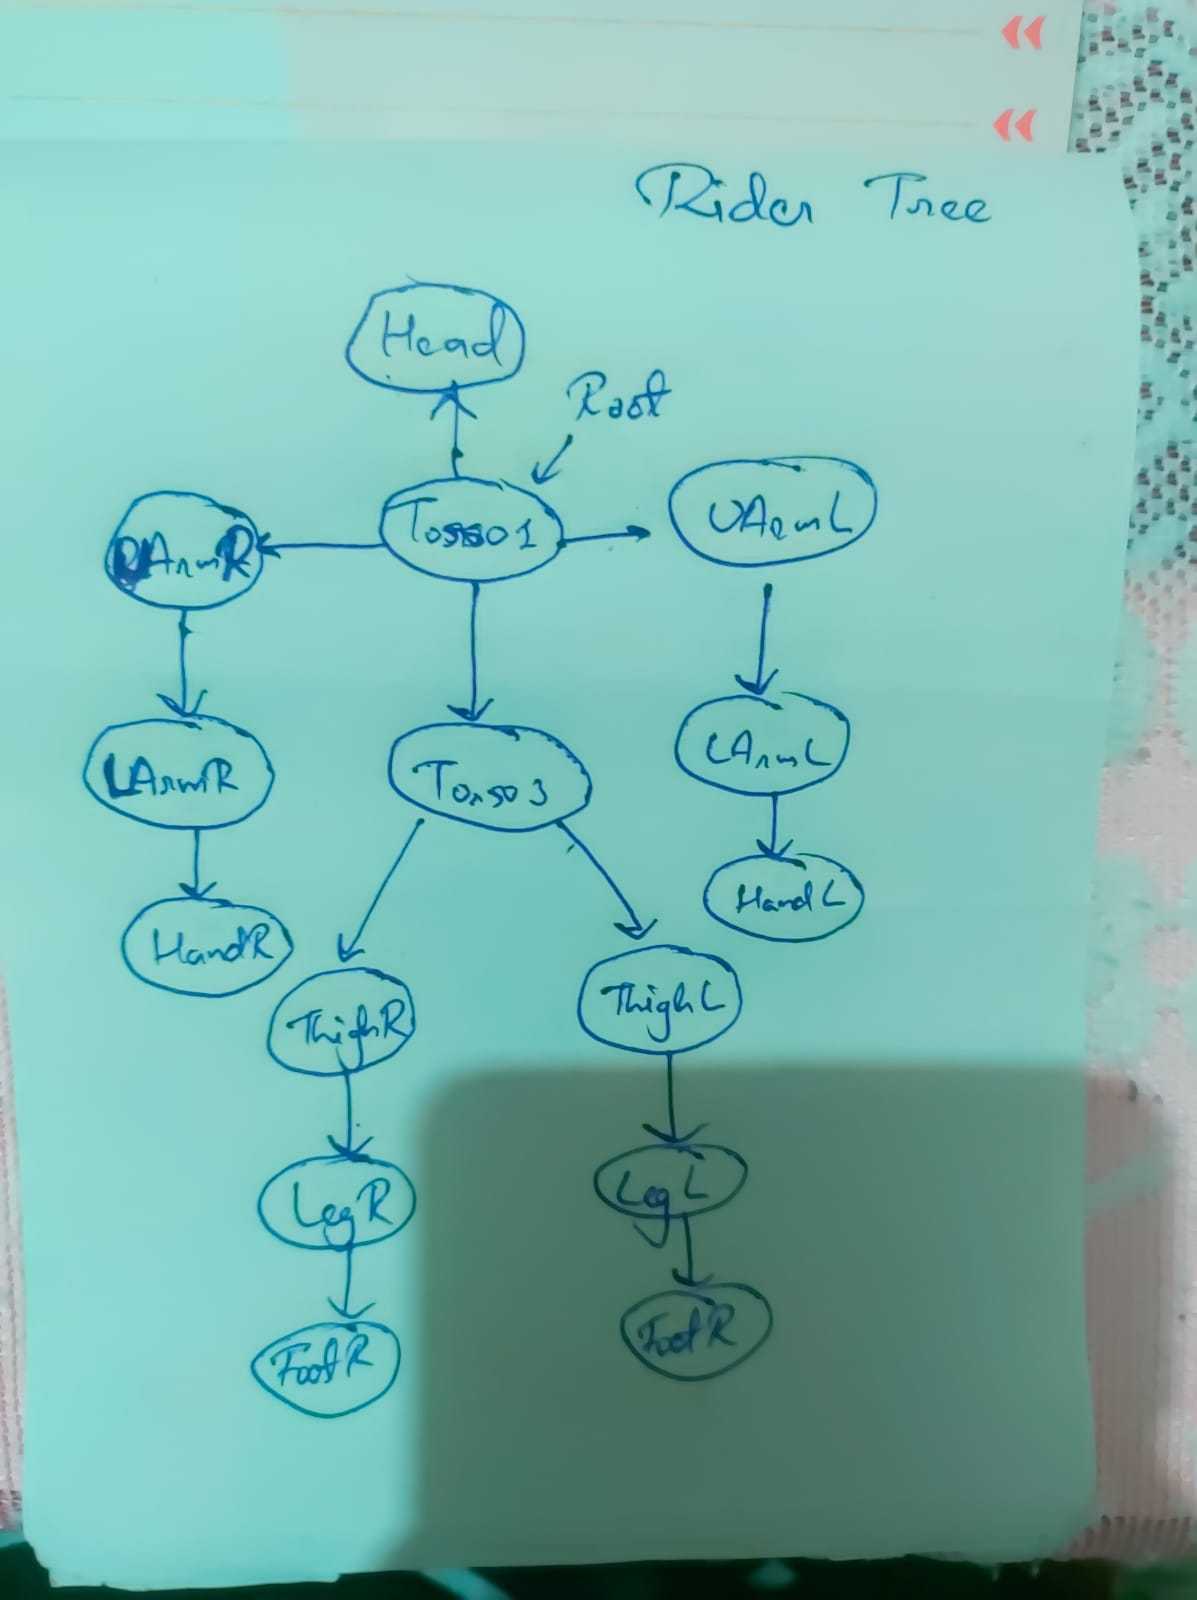 Rider Tree
Head
Root
UArmR
Torso1
UArmL
LArmR
Torso3
LArmL
HandR
HandL
ThighR
ThighL
LegR
LegL
FootR
FootR